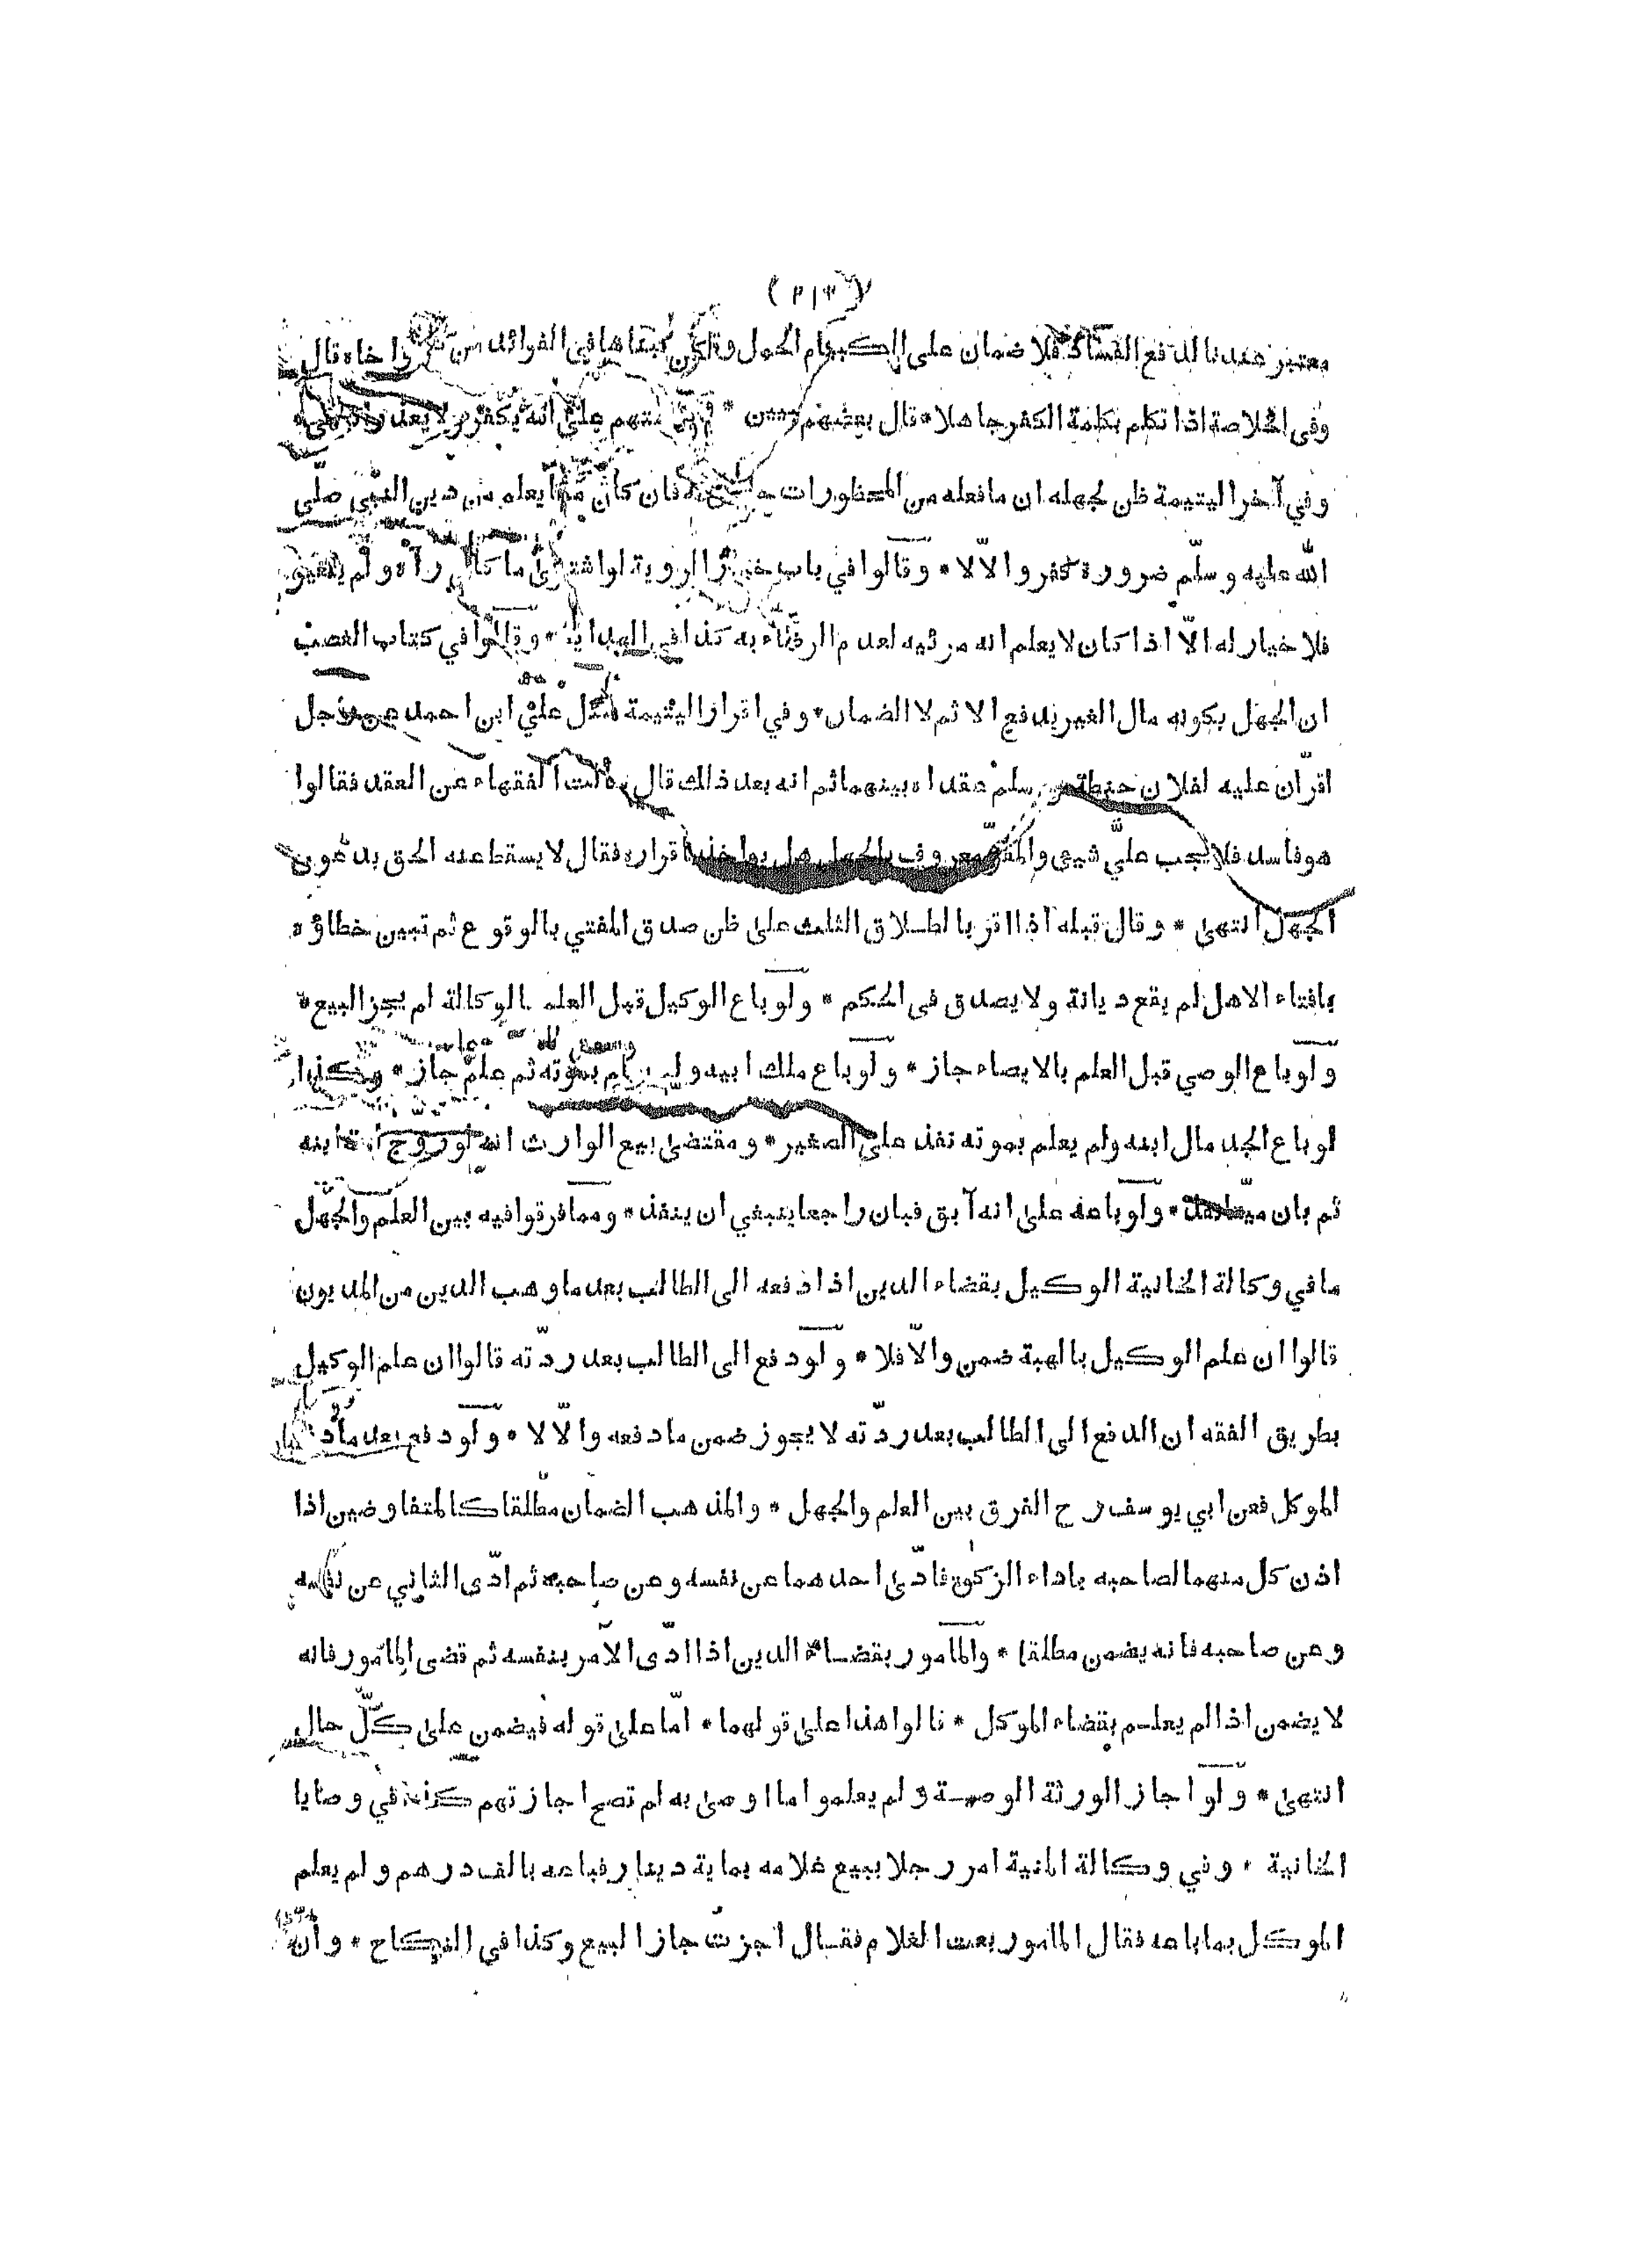 معتبر عندنا لدفع الفساد فلا ضمان على الكبير ام الحمول وقد في الفوائد من اخاه قال
وفى الخلاصة اذا تكلم بكلمة الكفر جاهلا * قال بعضهم * على انه يكفر ولا يعذر
وفي آخر اليتيمة ظن لجهله ان ما فعله من المحظورات فان كان مما يعلم من دين النبي صلّى
اللّه عليه وسلّم ضرورة كفر والّا لا * وقالوا في باب خيار الروية لو اشترى ما كان رآه ولم يتغير
فلا خيار له الّا اذا كان لا يعلم انه مرئيه لعدم الرضاء به كذا في الهداية * وقالوا في كتاب الغصب
ان الجهل بكونه مال الغير يدفع الاثم لا الضمان * وفي اقرار اليتيمة سئل علي ابن احمد عن رجل
اقرّ ان عليه لفلان حنطة من سلم عقداه بينهما ثم انه بعد ذلك قال سألت الفقهاء عن العقد فقالوا
هو فاسد فلا يجب عليّ شيئ والمقرّ معروف بالجهل هل يواخذ باقراره فقال لا يسقط عنه الحق بدعوى
الجهل انتهى * وقال قبله اذا اقر بالطلاق الثلث على ظن صدق المفتي بالوقوع ثم تبين خطاؤه
بافتاء الاهل لم يقع ديانة ولا يصدق فى الحكم * ولو باع الوكيل قبل العلم بالوكالة لم يجز البيع *
ولو باع الوصي قبل العلم بالايصاء جاز * ولو باع ملك ابيه ولم يعلم بموته ثم علم جاز * وكذا
لو باع الجد مال ابنه ولم يعلم بموته نفذ على الصغير * ومقتضى بيع الوارث انه لو زوج امة ابنه
ثم بان ميتا نفذ * ولو باعه على انه آبق فبان راجعا ينبغي ان ينفذ * ومما فرقوا فيه بين العلم والجهل
ما في وكالة الخانية الوكيل بقضاء الدين اذا دفعه الى الطالب بعد ما وهب الدين من المديون
قالوا ان علم الوكيل بالهبة ضمن والّا فلا * ولو دفع الى الطالب بعد ردّته قالوا ان علم الوكيل
بطريق الفقه ان الدفع الى الطالب بعد ردّته لا يجوز ضمن ما دفعه والّا لا * ولو دفع بعد ما
الموكل فعن ابي يوسف رح الفرق بين العلم والجهل * والمذهب الضمان مطلقا كالمتفاوضين اذا
اذن كل منهما لصاحبه باداء الزكوة فادّى احدهما عن نفسه وعن صاحبه ثم ادّى الثاني عن نفسه
وعن صاحبه فانه يضمن مطلقا * والمأمور بقضاء الدين اذا ادّى الآمر بنفسه ثم قضى المأمور فانه
لا يضمن اذا لم يعلم بقضاء الموكل * قالوا هذا على قولهما * امّا على قوله فيضمن على كلّ حال
انتهى * ولو اجاز الورثة الوصية ولم يعلموا ما اوصى به لم تصح اجازتهم كذا في وصايا
الخانية * وفي وكالة المنية امر رجلا ببيع غلامه بماية دينار فباعه بالف درهم ولم يعلم
الموكل بما باعه فقال المأمور بعت الغلام فقال اجزت جاز البيع وكذا في النكاح * وان